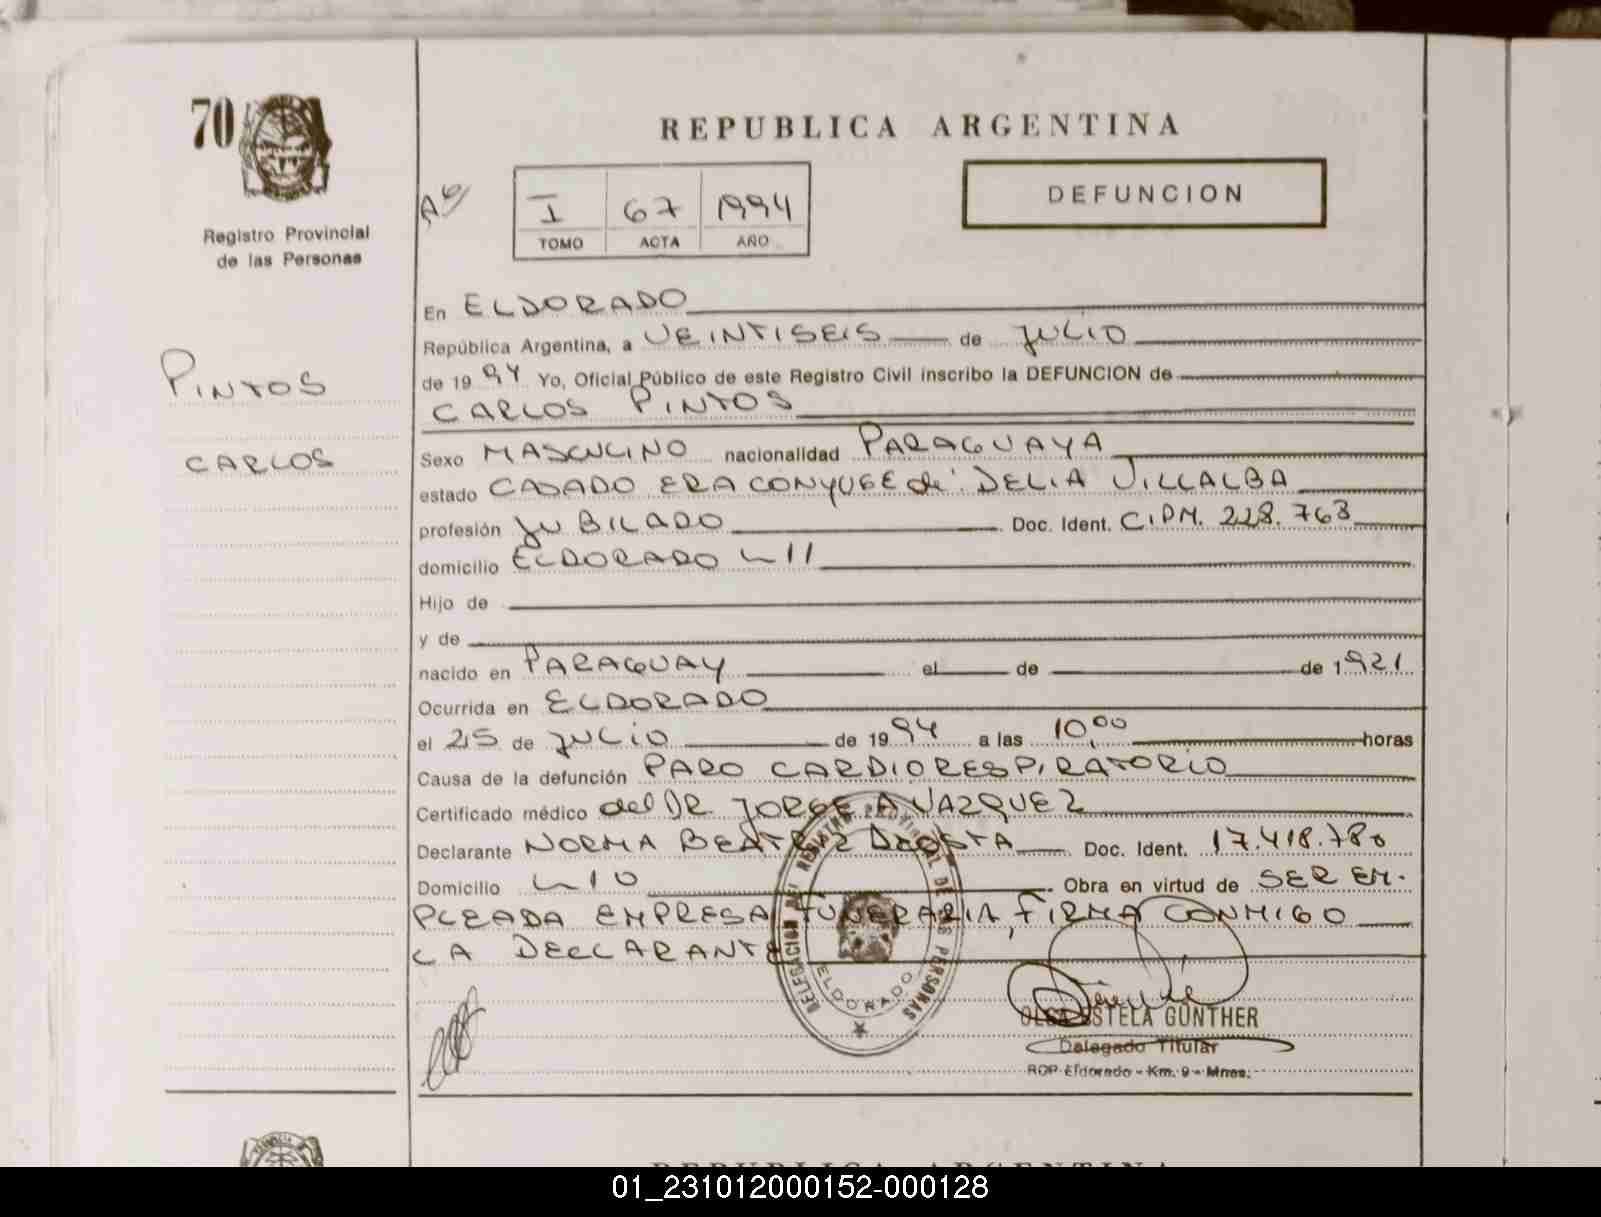 70
Registro Provincial
de las Personas
PINTOS
CARLOS
REPUBLICA ARGENTINA
I 67 1994
TOMO ACTA AÑO
DEFUNCION
En ELDORADO
República Argentina, a VEINTISEIS de JULIO
de 1994 Yo, Oficial Público de este Registro Civil inscribo la DEFUNCION de
CARLOS PINTOS
Sexo MASCULINO nacionalidad PARAGUAYA
estado CASADO ERA CONYUGE de: DELIA VILLALBA
profesión JUBILADO Doc. Ident. C.I.P.M. 228.763
domicilio ELDORADO L 11
Hijo de
y de
nacido en PARAGUAY el de de 1921
Ocurrida en ELDORADO
el 25 de JULIO de 1994 a las 10,00 horas
Causa de la defunción PARO CARDIORESPIRATORIO
Certificado médico del DR JORGE A VAZQUEZ
Declarante NORMA BEATRIZ DACOSTA Doc. Ident. 17.418.780
Domicilio L 10 Obra en virtud de SER EM-
PLEADA EMPRESA FUNERARIA, FIRMA CONMIGO
LA DECLARANTE
DELEGACION DEL REGISTRO PROVINCIAL DE LAS PERSONAS
ELDORADO
OLGA ESTELA GUNTHER
Delegado Titular
RDP Eldorado - Km. 9 - Mnes.
REPUBLICA ARGENTINA
01_231012000152-000128